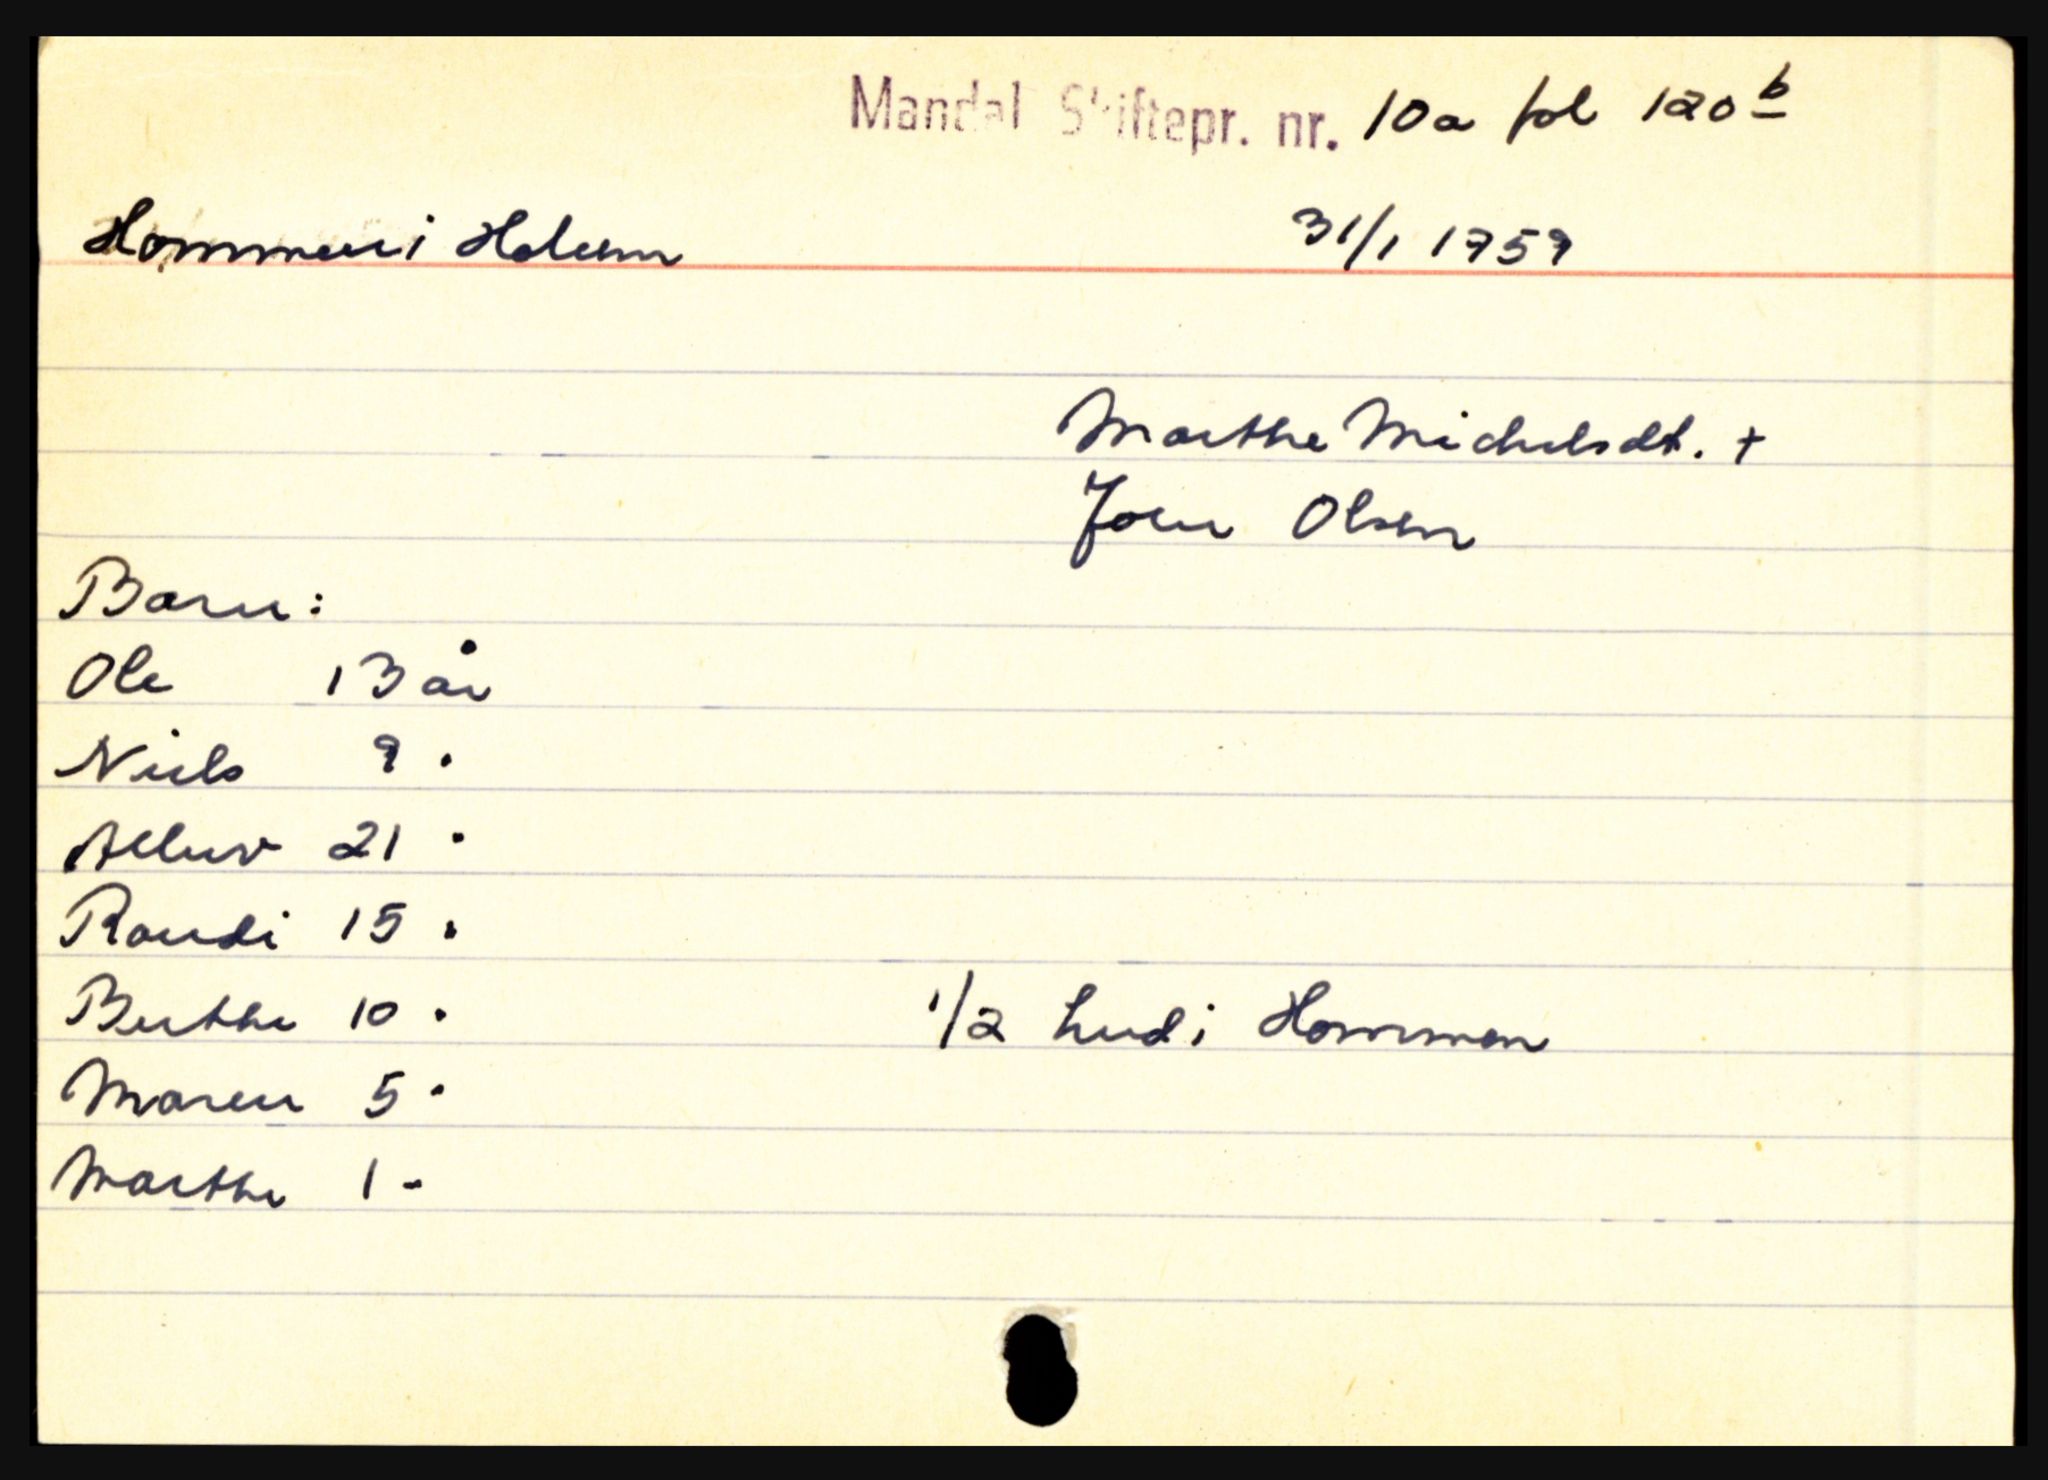 Mandal Skiftepr. nr. 10a fol 120 b
Hommen i Holum 31/1 1759
Marthe Michelsdt. +
Joen Olsen
Barn:
Ole 13 år
Niels 9 "
Alluv 21 "
Randi 15 "
Berthe 10 " 1/2 hud i Hommen
Maren 5 "
Marthe 1 -